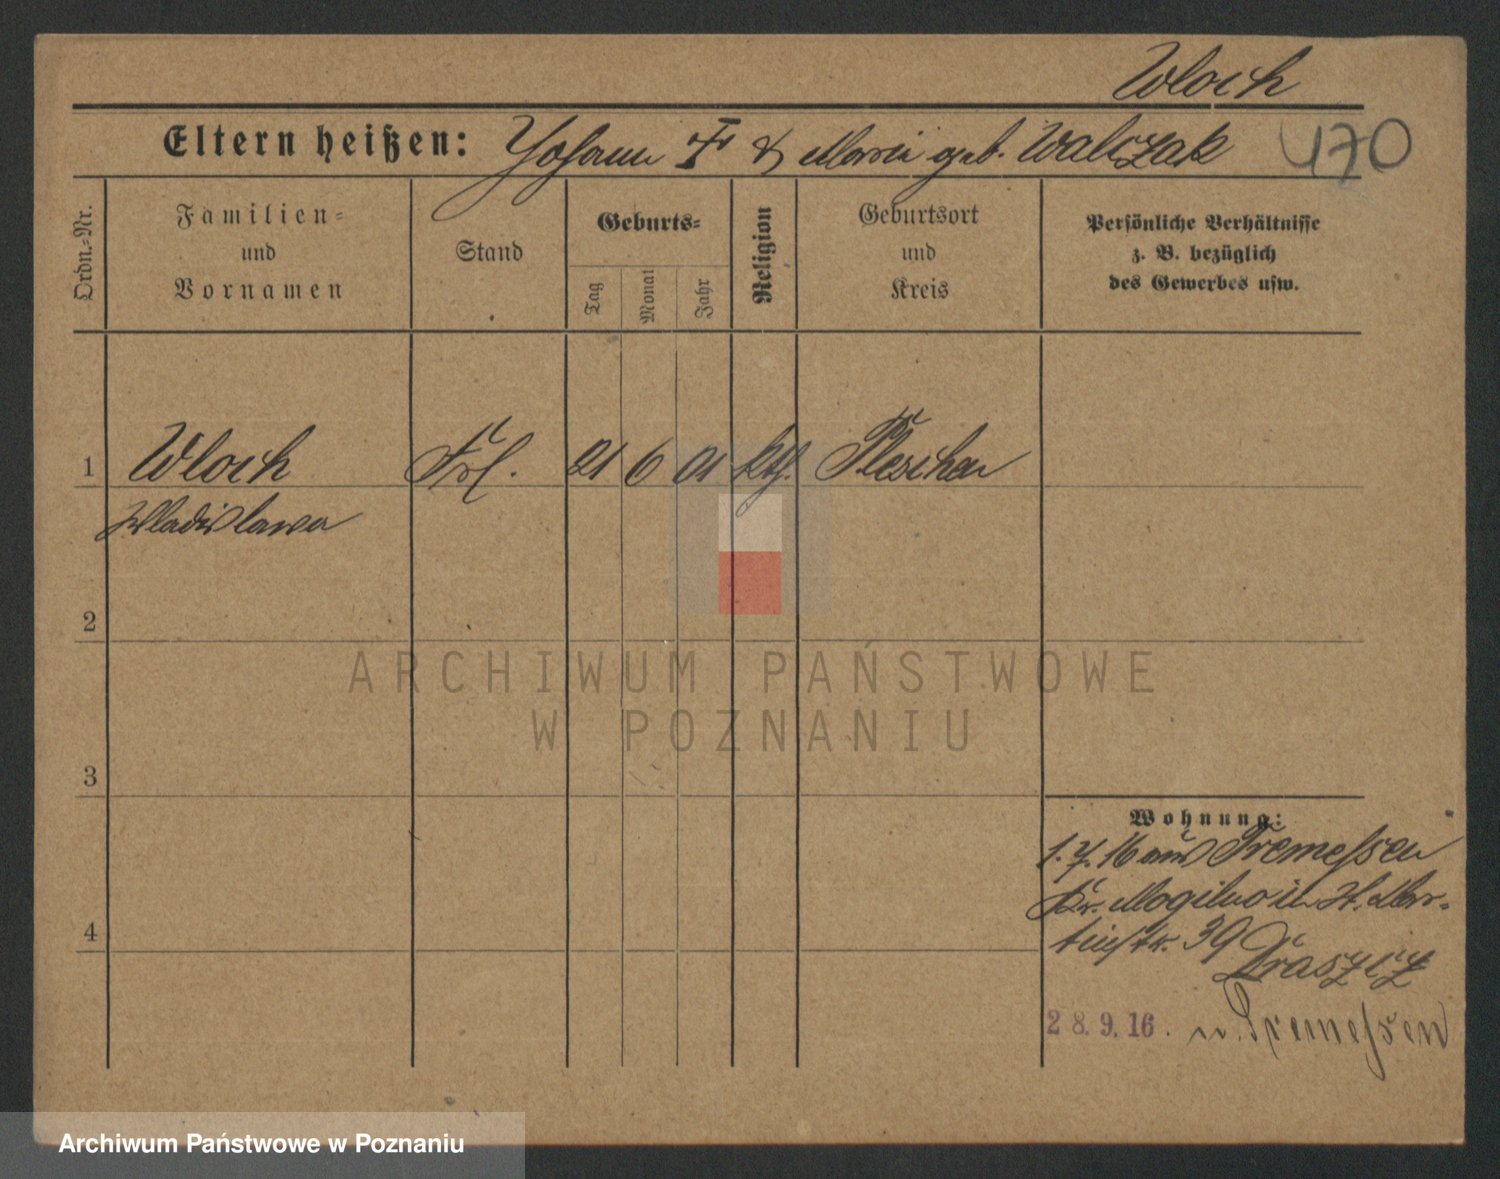 Wloch
Eltern heißen: Johann † & Marie geb. Walczak 470
Ordn.-Nr.
Familien-
und
Vornamen
Stand
Geburts-
Tag
Monat
Jahr
Religion
Geburtsort
und
Kreis
Persönliche Verhältnisse
z. B. bezüglich
des Gewerbes usw.
1 Wloch Frl. 21 6 01 kth. Pleschen
Wladislawa
2
3
4
ARCHIWUM PAŃSTWOWE
W POZNANIU
Wohnung:
1.7.16 aus Tremessen
Kr. Mogilno in St. Mar-
tinstr. 39
28.9.16. n. Tremessen
Archiwum Państwowe w Poznaniu